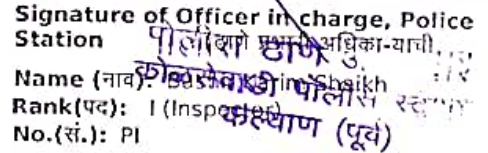 Signature of Officer in charge, Police
Station (ठाणे प्रभारी अधिका-याची
पोलीस ठाणे
Name (नाव): Shaikh
कोळसेवाडी पोलीस
Rank(पद): I (Inspector)
कल्याण (पूर्व)
No.(सं.): PI